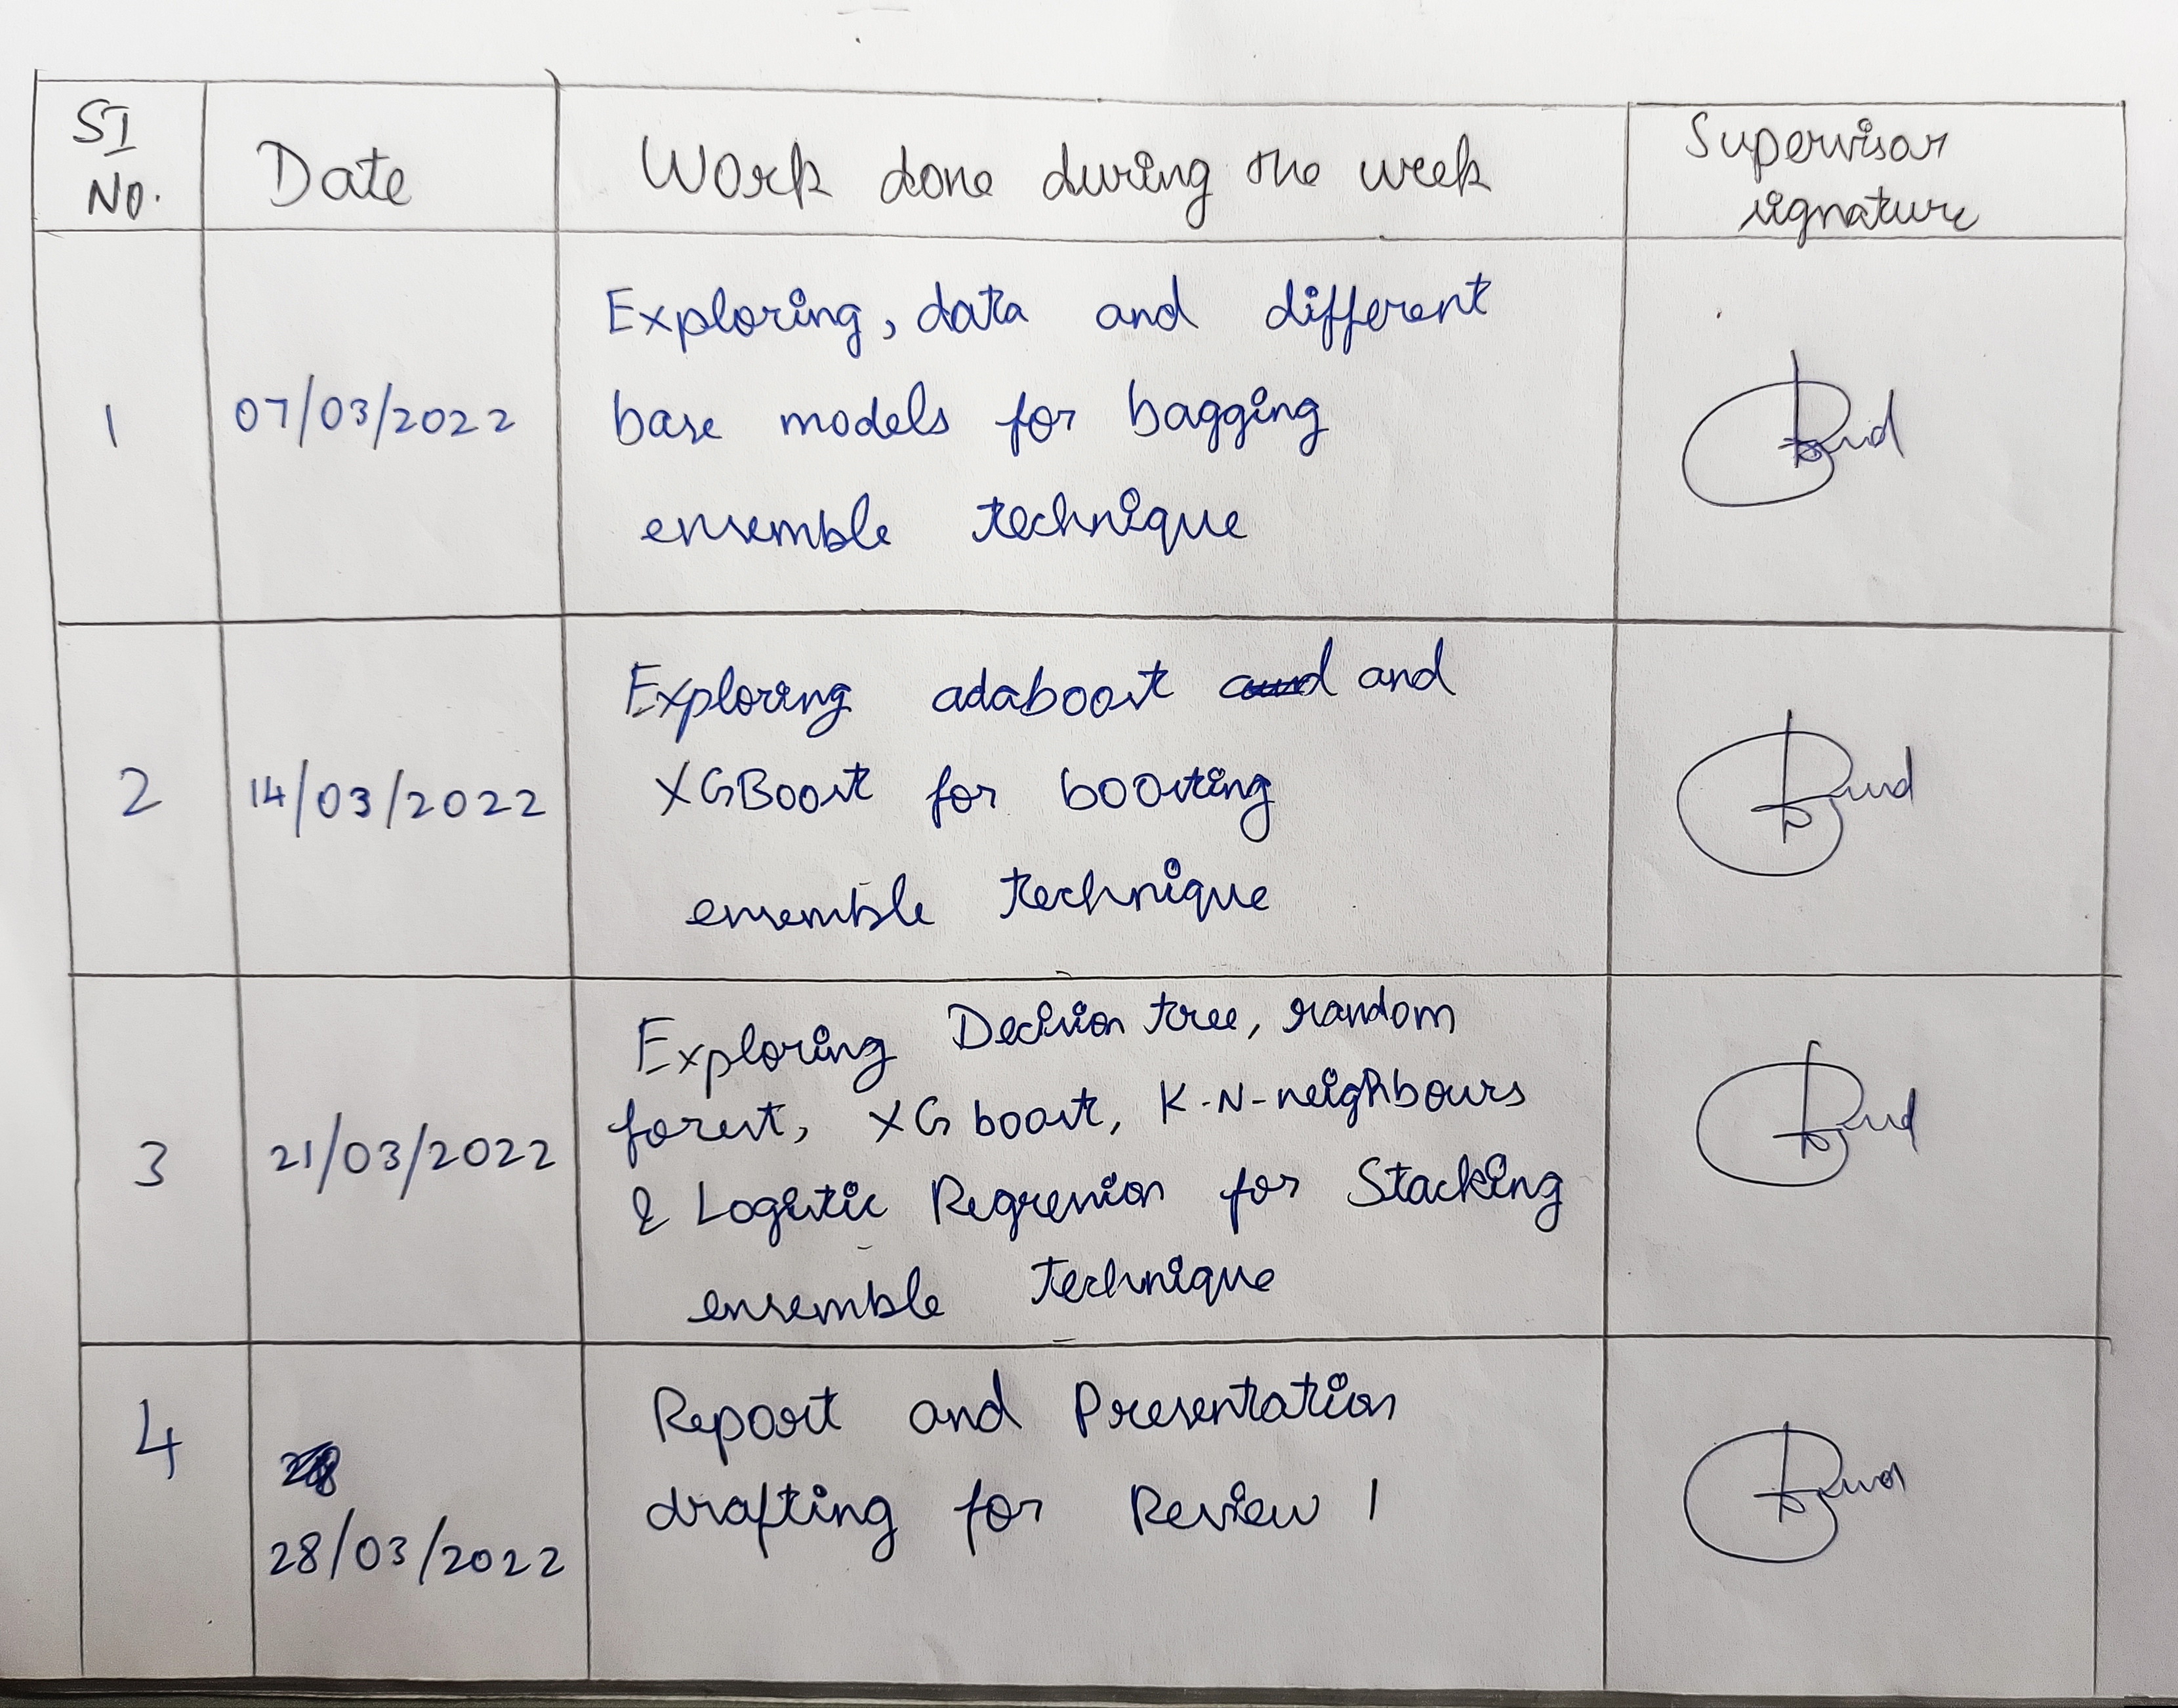 SI
No.
Date
Work done during the week
Supervisor
signature
Exploring, data and different
1
07/03/2022
base models for bagging
ensemble technique
Exploring adaboost and and
2
14/03/2022
XGBoost for boosting
ensemble technique
Exploring Decision tree, random
forest, XG boost, K-N-neighbours
3
21/03/2022
& Logistic Regression for Stacking
ensemble technique
4
28/03/2022
Report and Presentation
drafting for Review 1